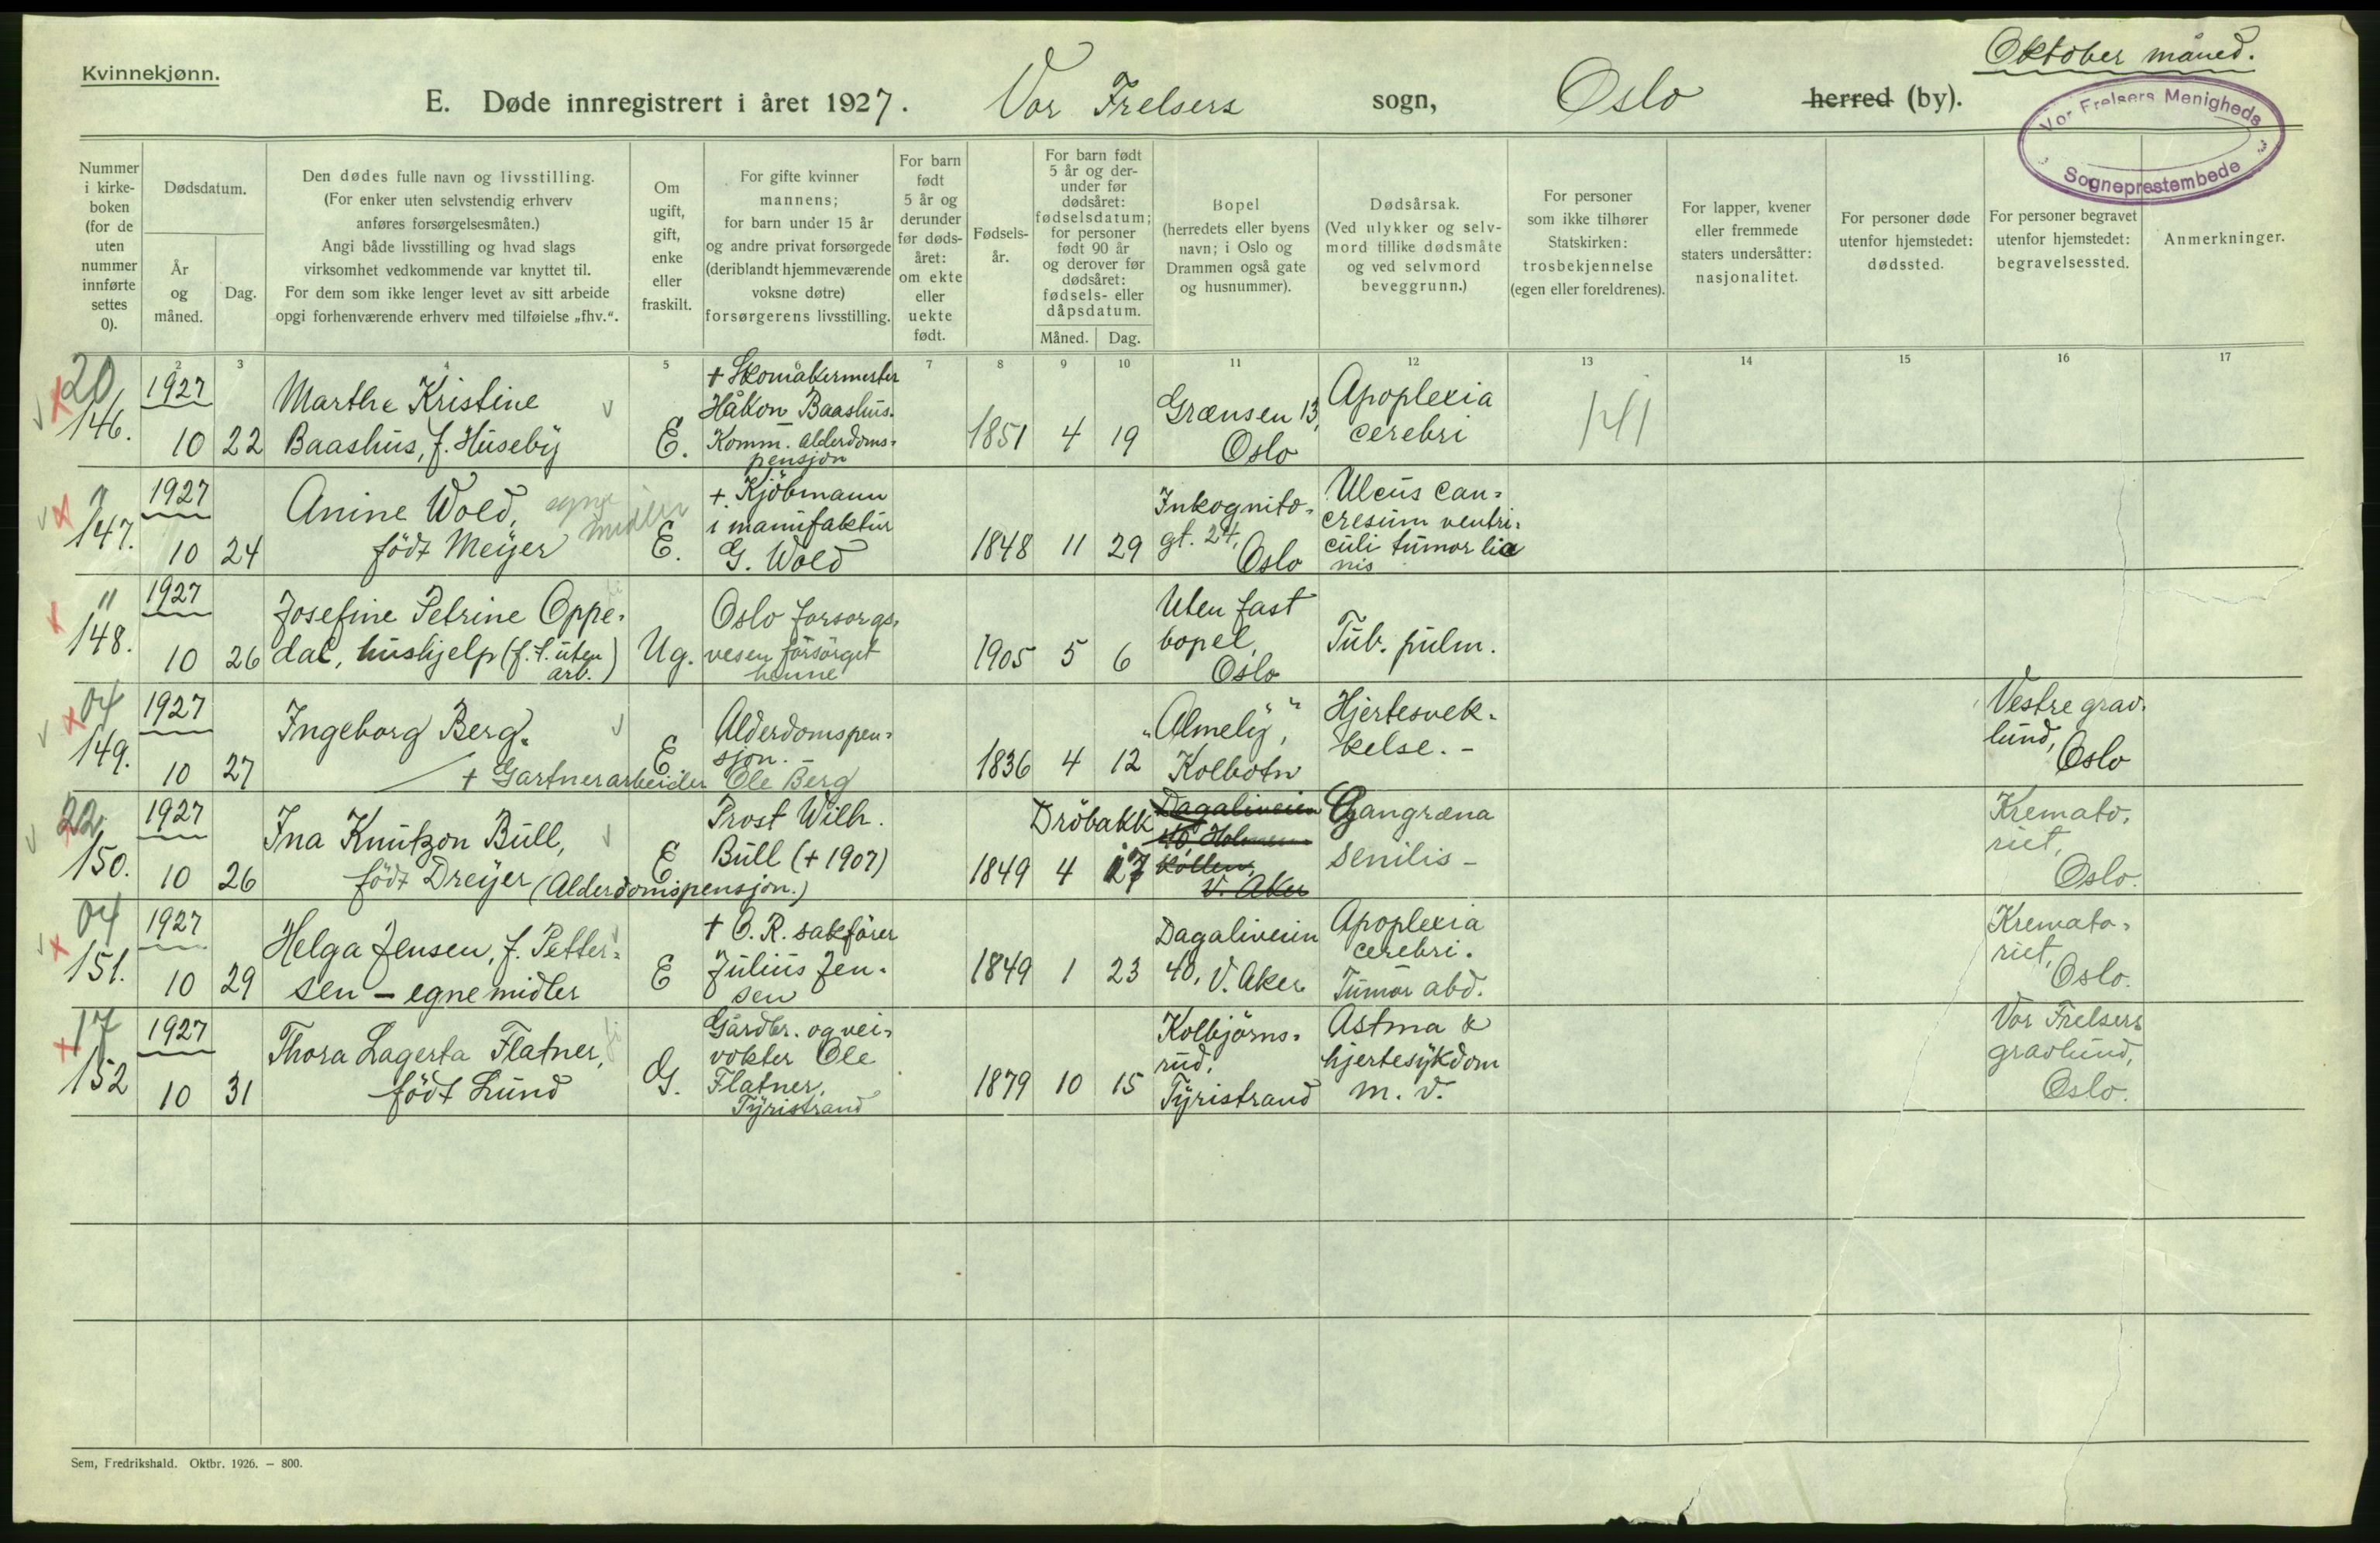 Oktober måned.
Kvinnekjønn.
E. Døde innregistrert i året 1927. Vor Frelsers sogn, Oslo herred (by).
Vor Frelsers Menigheds
Sogneprestembede
Nummer i kirke-boken (for de uten nummer innførte settes 0).
Dødsdatum.
År og måned.
Dag.
Den dødes fulle navn og livsstilling.
(For enker uten selvstendig erhverv
anføres forsørgelsesmåten.)
Angi både livsstilling og hvad slags
virksomhet vedkommende var knyttet til.
For dem som ikke lenger levet av sitt arbeide
opgi forhenværende erhverv med tilføielse „fhv.“.
Om ugift, gift, enke eller fraskilt.
For gifte kvinner
mannens;
for barn under 15 år
og andre privat forsørgede
(deriblandt hjemmeværende
voksne døtre)
forsørgerens livsstilling.
For barn født 5 år og derunder før døds-året: om ekte eller uekte født.
Fødsels-år.
For barn født 5 år og der-under før dødsåret: fødselsdatum; for personer født 90 år og derover før dødsåret: fødsels- eller dåpsdatum.
Måned. Dag.
Bopel
(herredets eller byens
navn; i Oslo og
Drammen også gate
og husnummer).
Dødsårsak.
(Ved ulykker og selv-
mord tillike dødsmåte
og ved selvmord
beveggrunn.)
For personer
som ikke tilhører
Statskirken:
trosbekjennelse
(egen eller foreldrenes).
For lapper, kvener
eller fremmede
staters undersåtter:
nasjonalitet.
For personer døde
utenfor hjemstedet:
dødssted.
For personer begravet
utenfor hjemstedet:
begravelsessted.
Anmerkninger.
2 3 4 5 7 8 9 10 11 12 13 14 15 16 17
20
146.
1927
10 22
Marthe Kristine
Baashus, f. Huseby
E.
+ Skomakermester
Håkon Baashus.
Komm. alderdoms-
pensjon
1851 4 19
Grænsen 13,
Oslo
Apoplexia
cerebri
141
"
147.
1927
10 24
Anine Wold, egne midler
født Meyer
E.
+ Kjöbmann
i manufaktur
G. Wold
1848 11 29
Inkognito-
gt. 24,
Oslo
Ulcus can-
cresum ventri-
culi tumor lie
nis
"
148.
1927
10 26
Josefine Petrine Oppe-
dal, hushjelp (f. t. uten
arb.)
Ug.
Oslo forsorgs-
vesen forsørget
henne
1905 5 6
Uten fast
bopel,
Oslo
Tub. pulm.
04
149.
1927
10 27
Ingeborg Berg.
+ Gartnerarbeider Ole Berg
E
Alderdomspen-
sjon. -
1836 4 12
„Almely“,
Kolbotn
Hjertesvek-
kelse. -
Vestre grav-
lund,
Oslo
22
150.
1927
10 26
Ina Knutzon Bull,
født Dreyer (Alderdomspensjon.)
E
Prost Wilh.
Bull (+ 1907)
1849 4 17
Dröbakk
Dagaliveien
40, Holmen-
kollen,
V. Aker
Gangræna
senilis -
Kremato-
riet,
Oslo.
04
151.
1927
10 29
Helga Jensen, f. Petter-
sen - egne midler
E
+ O. R. sakfører
Julius Jen-
sen
1849 1 23
Dagaliveien
40, V. Aker
Apoplexia
cerebri.
Tumor abd.
Kremato-
riet,
Oslo.
17
152
1927
10 31
Thora Lagerta Flatner,
født Lund
G.
Gårdbr. og vei-
vokter Ole
Flatner,
Tyristrand
1879 10 15
Kolbjörns-
rud,
Tyristrand
Astma &
hjertesykdom
m. v.
Vor Frelsers
gravlund,
Oslo.
Sem, Fredrikshald. Oktbr. 1926. – 800.